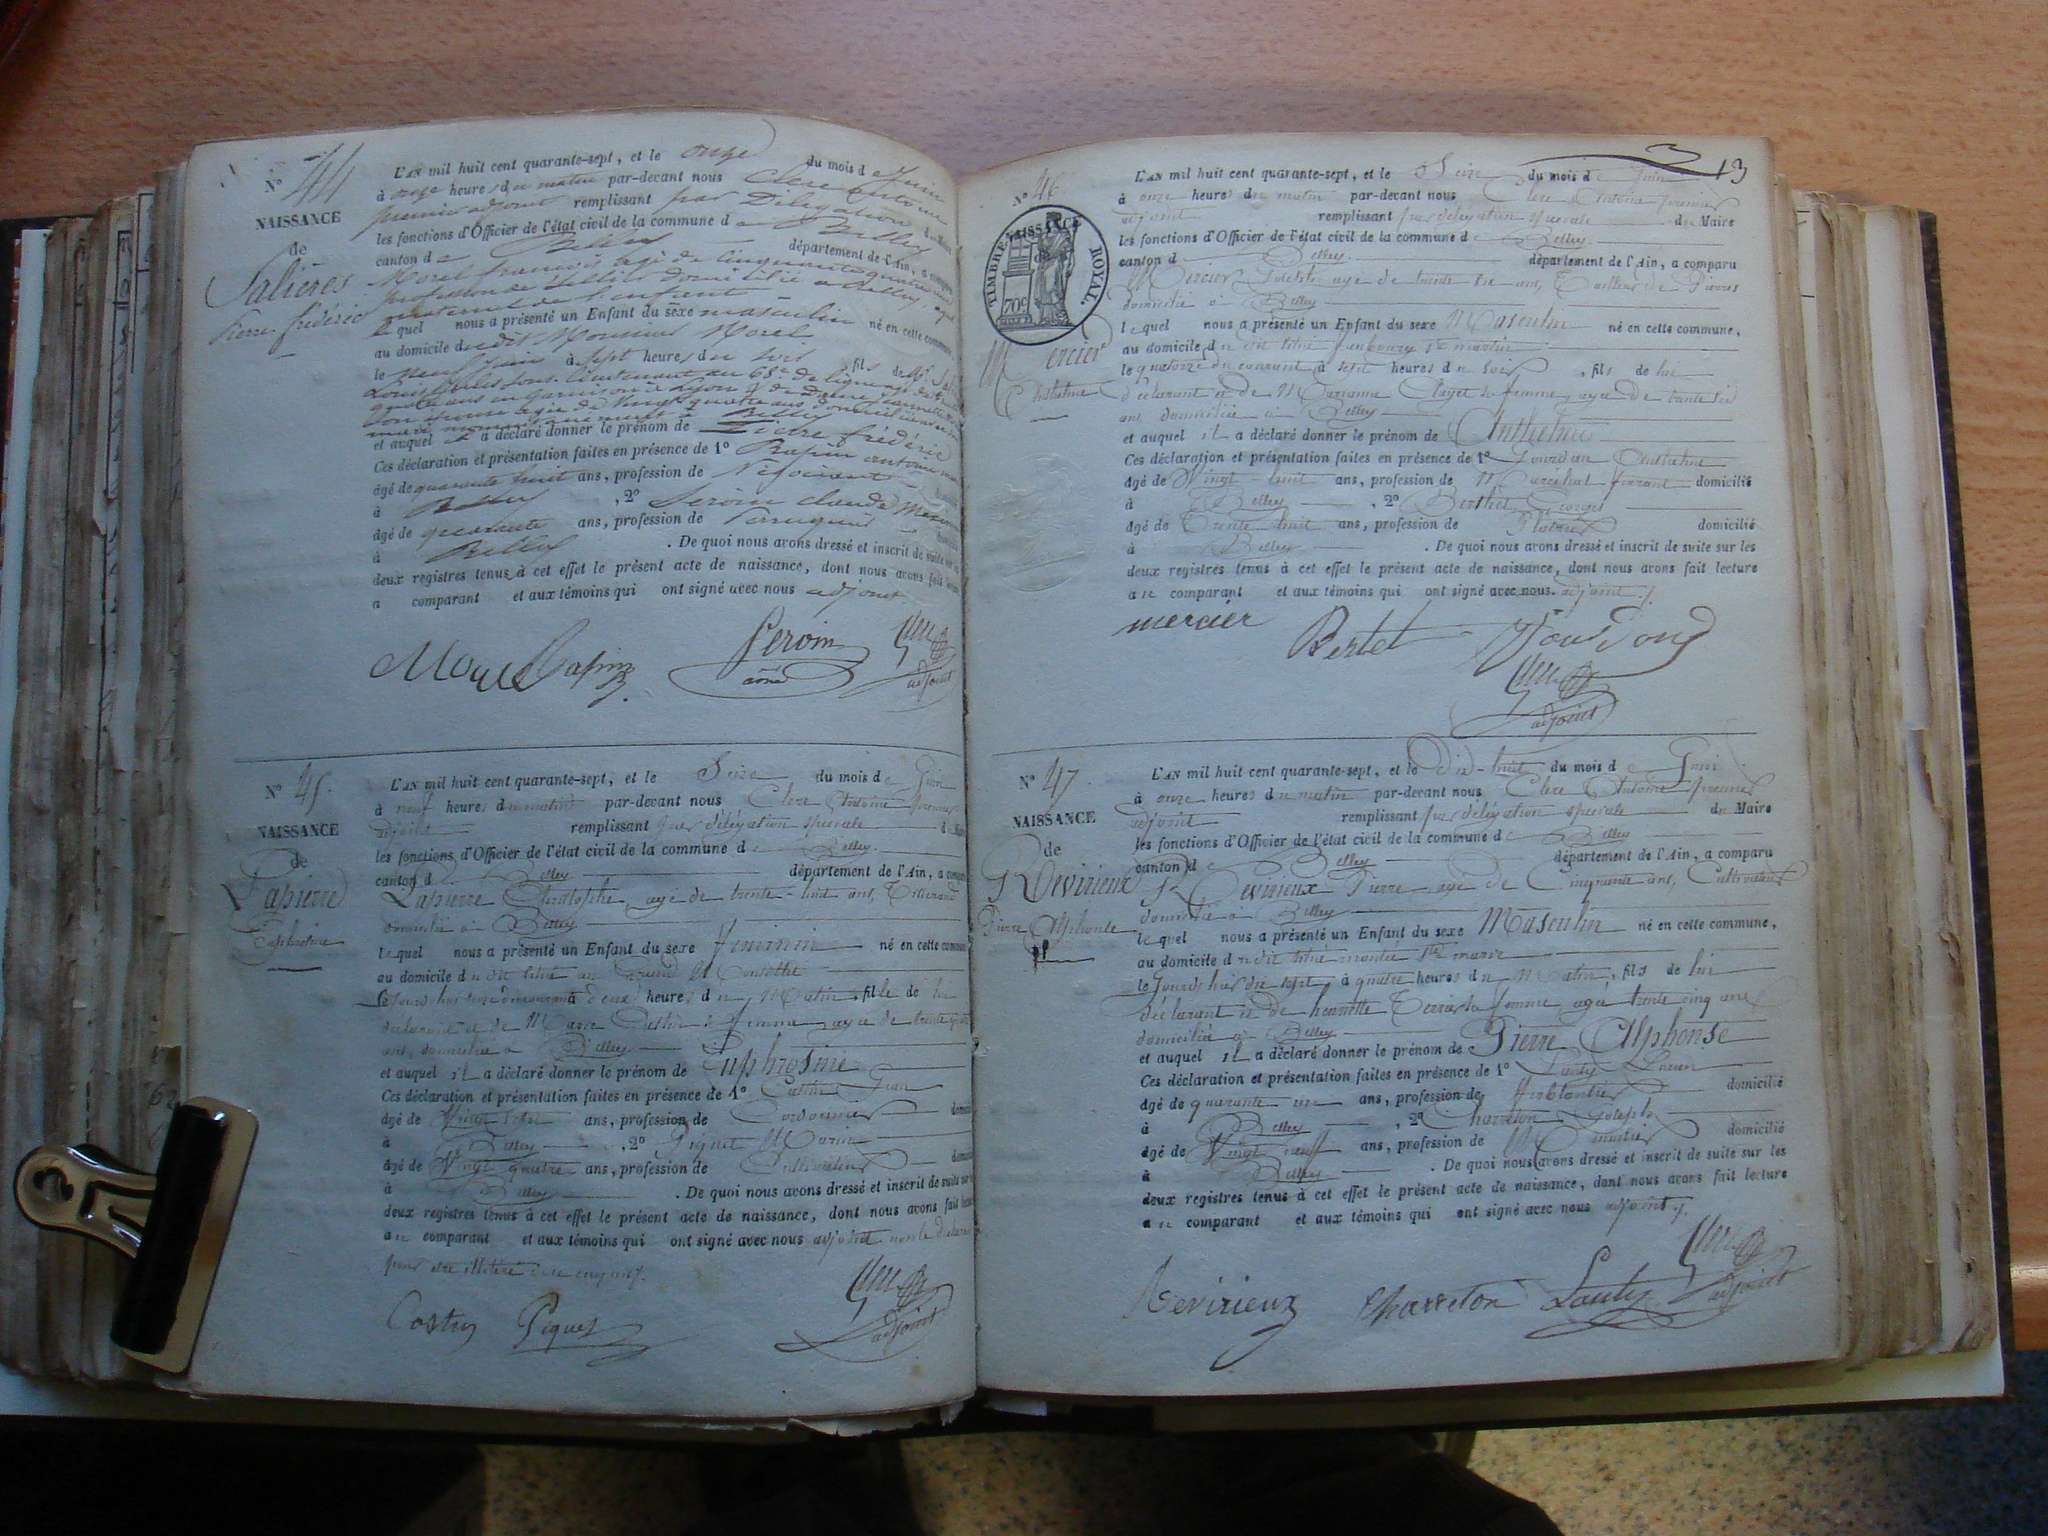 N° 44
NAISSANCE
de
Salières
Pierre frédéric
L'AN mil huit cent quarante-sept, et le onze du mois de Juin
à onze heures du matin par-devant nous Clerc Antoine
premier adjoint remplissant par Délégation du Maire
les fonctions d'Officier de l'état civil de la commune de Belley
canton de Belley département de l'Ain, a comparu
Morel françois agé de Cinquante
profession de Sellier domicilié à Belley ayeul
maternel de l'enfant
le quel nous a présenté un Enfant du sexe masculin né en cette commune,
au domicile dudit Monsieur Morel
le neuf Juin à sept heures du soir fils de
Louis sous-lieutenant au 68e de ligne agé de
quatre ans en garnison à Lyon & de Dame
agée de Vingt quatre ans domiciliée
et auquel il a déclaré donner le prénom de Pierre frédéric
Ces déclaration et présentation faites en présence de 1° Rapin antoine
âgé de quarante huit ans, profession de Négociant
à Belley , 2° Peroin claude
âgé de quarante ans, profession de Perruquier
à Belley . De quoi nous avons dressé et inscrit de suite sur les
deux registres tenus à cet effet le présent acte de naissance, dont nous avons fait lecture
a comparant et aux témoins qui ont signé avec nous adjoint.
Morel Rapin Peroin
aîné adjoint
N° 45.
NAISSANCE
de
Lapierre
Euphrosine
L'AN mil huit cent quarante-sept, et le Seize du mois de Juin
à neuf heures du matin par-devant nous Clerc Antoine premier
adjoint remplissant par délégation spéciale du Maire
les fonctions d'Officier de l'état civil de la commune de Belley
canton de Belley département de l'Ain, a comparu
Lapierre Christophe, agé de trente-huit ans, Tisserand
domicilié à Belley
lequel nous a présenté un Enfant du sexe Féminin né en cette commune,
au domicile du dit titre
le jourd'hui seize du courant à deux heures du Matin, fille de lui
déclarant et de Marie sa femme agée de trente
ans, domiciliée à Belley
et auquel il a déclaré donner le prénom de Euphrosine
Ces déclaration et présentation faites en présence de 1° Jean
âgé de Vingt ans, profession de Cordonnier
à Belley , 2° Piquet Marin
âgé de Vingt quatre ans, profession de Cultivateur
à Belley . De quoi nous avons dressé et inscrit de suite sur les
deux registres tenus à cet effet le présent acte de naissance, dont nous avons fait lecture
au comparant et aux témoins qui ont signé avec nous adjoint non le déclarant
pour être illitéré
Piquet adjoint
13
N° 46.
NAISSANCE
TIMBRE ROYAL.
70c
Mercier
Anthelme
L'AN mil huit cent quarante-sept, et le Seize du mois de Juin
à onze heures du matin par-devant nous Clerc Antoine premier
adjoint remplissant par délégation spéciale du Maire
les fonctions d'Officier de l'état civil de la commune de Belley
canton de Belley département de l'Ain, a comparu
Mercier Joseph agé de trente six ans, Tailleur de Pierres
domicilié à Belley
lequel nous a présenté un Enfant du sexe Masculin né en cette commune,
au domicile du dit titré faubourg St martin
le quatorze du courant à sept heures du soir, fils de lui
déclarant et de Marianne Clayet sa femme, agée de trente six
ans domiciliée à Belley
et auquel il a déclaré donner le prénom de Anthelme
Ces déclaration et présentation faites en présence de 1° Anthelme
âgé de Vingt-huit ans, profession de Maréchal ferrant domicilié
à Belley , 2° Berthet Georges
âgé de Trente huit ans, profession de Platrier domicilié
à Belley . De quoi nous avons dressé et inscrit de suite sur les
deux registres tenus à cet effet le présent acte de naissance, dont nous avons fait lecture
au comparant et aux témoins qui ont signé avec nous adjoint.
mercier Bertet
adjoint
N° 47.
NAISSANCE
de
Revirieux
Pierre Alphonse
L'AN mil huit cent quarante-sept, et le dix-huit du mois de Juin
à onze heures du matin par-devant nous Clerc Antoine premier
adjoint remplissant par délégation spéciale du Maire
les fonctions d'Officier de l'état civil de la commune de Belley
canton de Belley département de l'Ain, a comparu
Revirieux Pierre agé de Cinquante ans, Cultivateur
domicilié à Belley
lequel nous a présenté un Enfant du sexe Masculin né en cette commune,
au domicile du dit titré montée Ste marie
le Jourd'hier dix sept, à quatre heures du Matin, fils de lui
déclarant et de henriette Terras sa femme agée trente cinq ans
domiciliée à Belley
et auquel il a déclaré donner le prénom de Pierre Alphonse
Ces déclaration et présentation faites en présence de 1° Lauty
âgé de quarante un ans, profession de Ferblantier domicilié
à Belley , 2° Charreton Joseph
âgé de Vingt neuf ans, profession de domicilié
à Belley . De quoi nous avons dressé et inscrit de suite sur les
deux registres tenus à cet effet le présent acte de naissance, dont nous avons fait lecture
au comparant et aux témoins qui ont signé avec nous adjoint.
Revirieux Charreton Lauty adjoint